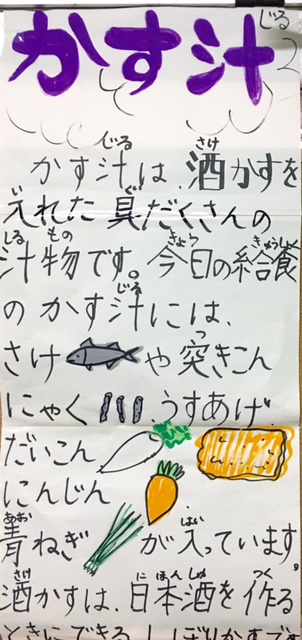 じる
かす汁
じる さけ
かす汁は、酒かすを
い ぐ
入れた具だくさんの
しる もの きょう きゅうしょく
汁物です。今日の給食
じる
のかす汁には、
つ
さけや突きこん
にゃく、うすあげ、
だいこん
にんじん
あお はい
青ねぎが入っています。
さけ に ほん しゅ つく
酒かすは、日本酒を作る
ときにできる